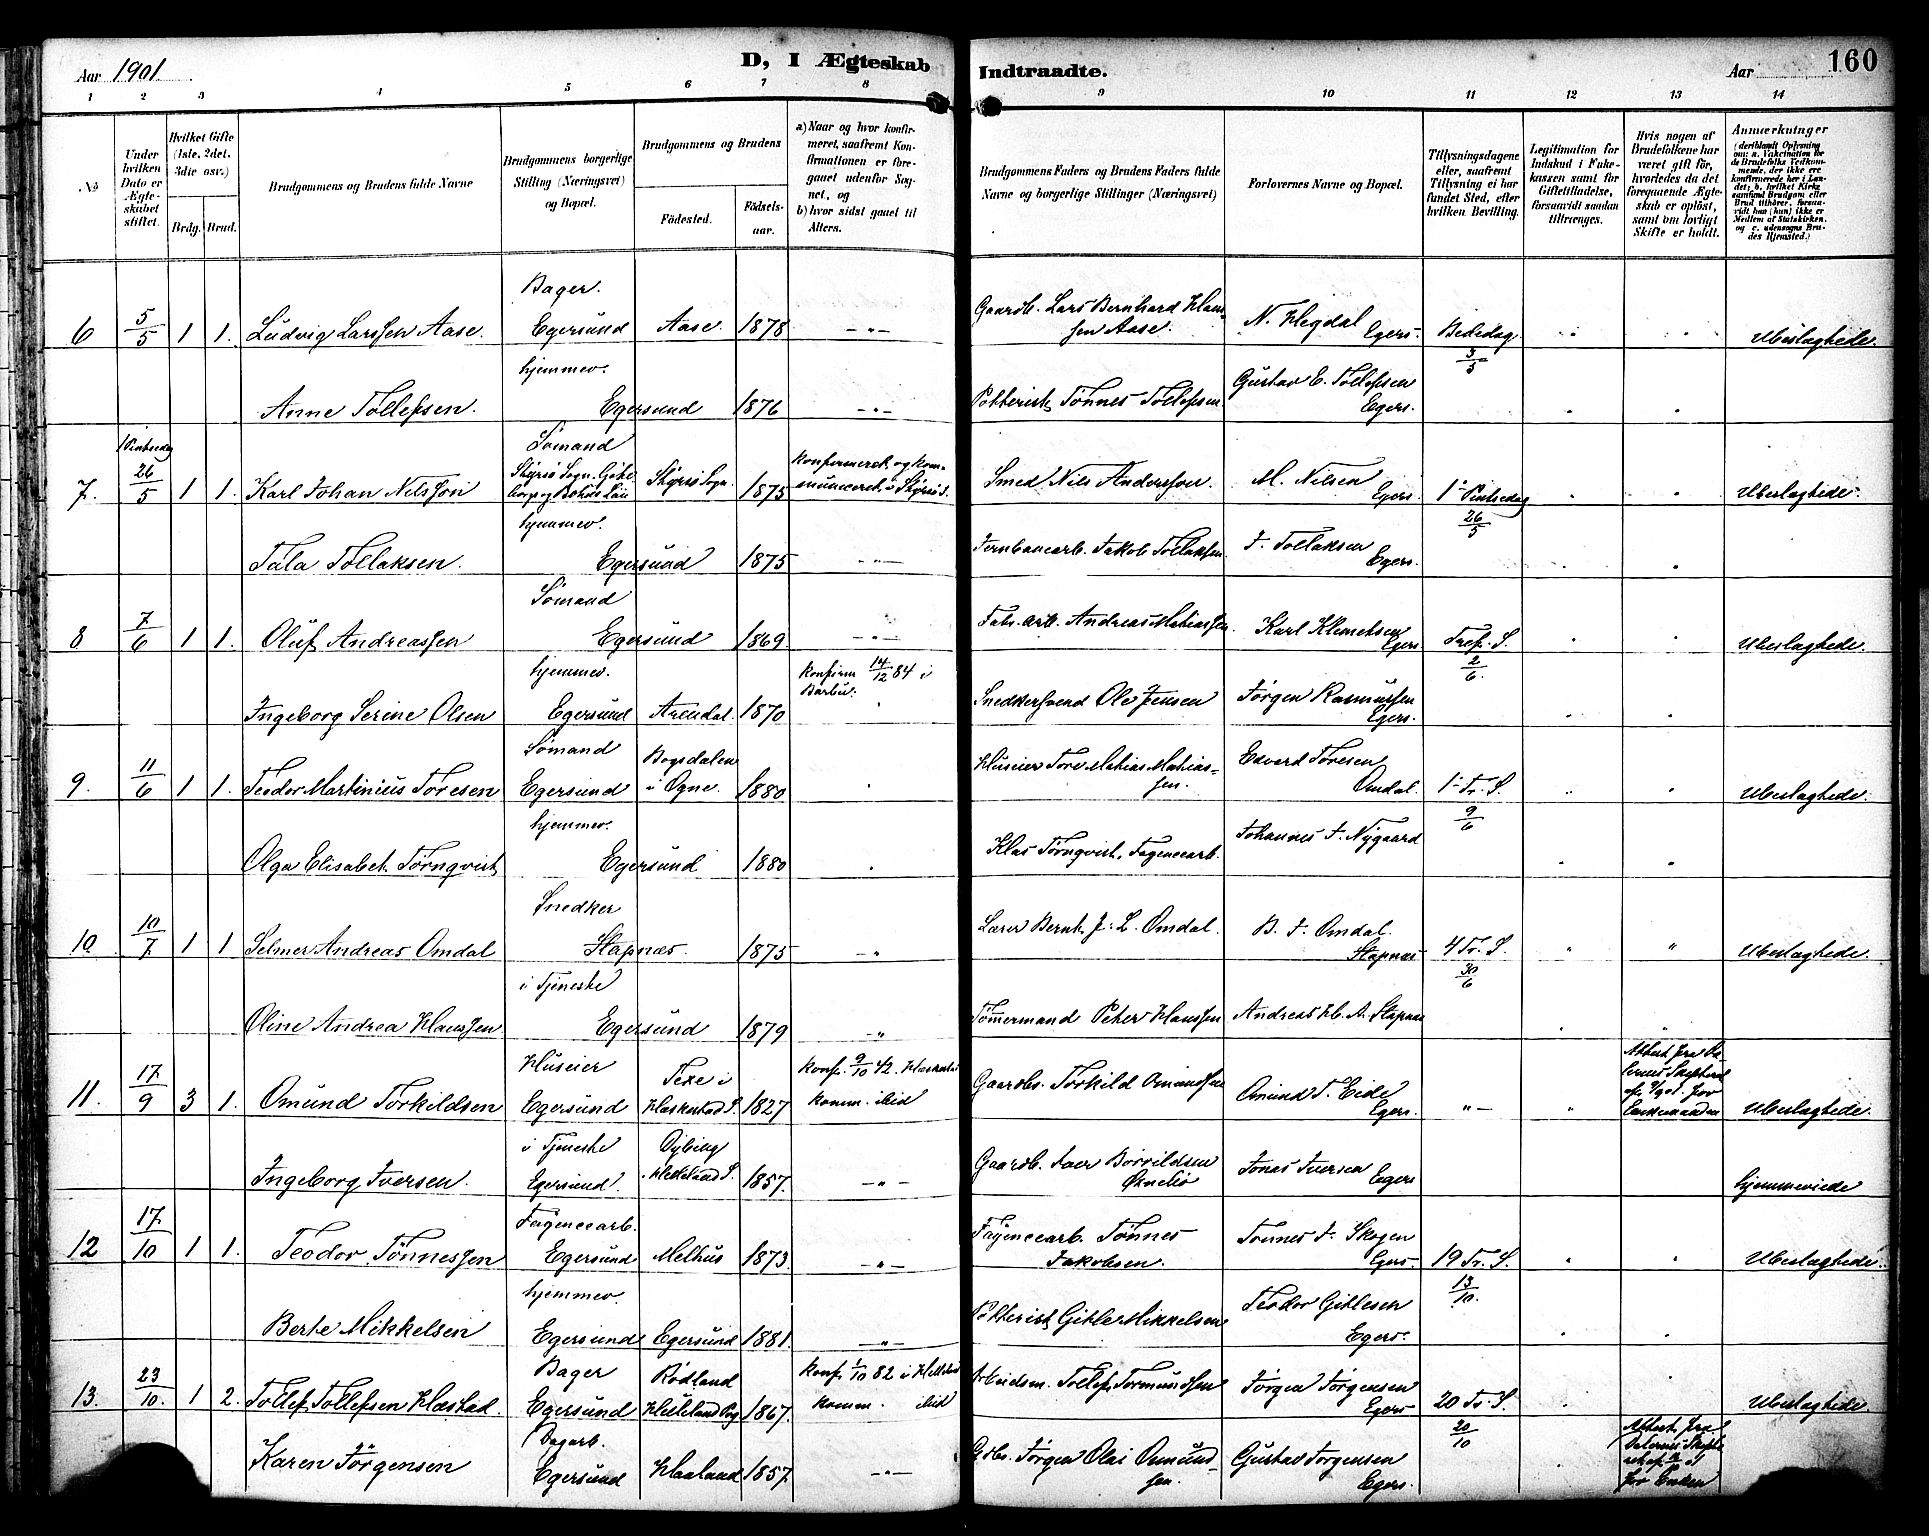 Aar 1901.
D, I Ægteskab
Indtraadte.
Aar
160
1 2 3 4 5 6 7 8 9 10 11 12 13 14
No
Under hvilken Dato er Ægteskabet stiftet.
Hvilket Gifte (1ste, 2det, 3die osv.)
Brdg. Brud.
Brudgommens og Brudens fulde Navne
Brudgommens borgerlige Stilling (Næringsvei) og Bopæl.
Brudgommens og Brudens
Födested.
Födselsaar.
a) Naar og hvor konfirmeret, saafremt Konfirmationen er foregaaet udenfor Sognet, og
b) hvor sidst gaaet til Alters.
Brudgommens Faders og Brudens Faders fulde Navne og borgerlige Stillinger (Næringsvei)
Forlovernes Navne og Bopæl.
Tillysningsdagene eller, saafremt Tillysning ei har fundet Sted, efter hvilken Bevilling.
Legitimation for Indskud i Enkekassen samt for Giftetilladelse, forsaavidt saadan tiltrænges.
Hvis nogen af Brudefolkene har været gift för, hvorledes da det foregaaende Ægteskab er oplöst, samt om lovligt Skifte er holdt.
Anmærkninger
6 5/5 1 1. Ludvig Larssen Aase. Bager. Egersund Aase. 1878 —"— Gaardb. Lars Bernhard Hanssen Aase. N. Hegdal Egers. Bededag 3/5 " " Ubeslægtede.
Anne Tollefsen. hjemmev. Egersund 1876 —"— Potterisk. Tönnes Tollefsen. Gustav E. Tollefsen Egers. " "
7. 1 Pintsedag 26/5 1 1. Karl Johan Nilsson Sömand Styrsö Sogn. Göteborgs og Bohus Län Styrsö Sogn. 1875 konfirmeret og kommuniceret i Styrsö S. Smed Nils Andersson M. Nilsen Egers. 1ste Pintsedag 26/5 " " Ubeslægtede.
Tala Tollaksen. hjemmev. Egersund 1875 —"— Jernbanearb. Jakob Tollaksen. J. Tollaksen Egers. " "
8 7/6 1 1. Oluf Andreassen Sömand Egersund 1869 —"— Fabr. arb. Andreas Mathiassen. Karl Klemetsen Egers Tref. S. 2/6. " " Ubeslægtede.
Ingeborg Serine Olsen hjemmev. Egersund Arendal 1870 Konfirm 14/12 84 i Barbu. " Snedkersvend Ole Jensen Jörgen Rasmussen Egers. " "
9. 11/6 1 1. Teodor Martinius Töresen Sömand Egersund Bogsdalen i Ogne. 1880 " Huseier Tore Mathias Mathiassen. Edvard Töresen Omdal. 1 Tr. S. 9/6 " " Ubeslægtede.
Olga Elisabet Törnqvist hjemmev. Egersund 1880 " Klas Törnqvist, Fagencearb. Johannes J. Nygaard " "
10 10/7 1 1 Selmer Andreas Omdal Snedker Stapnæs. 1875 —"— Lærer Bernt J. L. Omdal. B. J. Omdal. Stapnæs 4 Tr. S. 30/6 " " Ubeslægtede.
Oline Andrea Hanssen i Tjeneste Egersund 1879 —"— Tömmermand Peter Hanssen Andreas H. A. Stapnæs " "
11. 17/9 3 1. Omund Torkildsen Huseier Egersund Texe i Haskestad S. 1827 Konf. 9/10 42. Haskestad komm. ibid Gaardbr. Torkild Omundsen Omund T. Eide Egers. "— " Ubeslægtede.
Ingeborg Iversen. i Tjeneste Egersund. Dybing Helleland S. 1857. —"— Gaardb. Iver Börrildsen Jonas Iversen Egers hjemmeviede
12 17/10 1 1. Teodor Tönnessen Fagencearb. Egersund Melhus 1873. —"— Fagencearb. Tönnes Jakobsen. Tönnes J. Skogen Egers. 19 Tr. S. 13/10. " " Ubeslægtede.
Berte Mikkelsen hjemmev. Egersund Egersund 1881. —"— Potterisk. Gitle Mikkelsen Teodor Gitlesen Egers. " "
13. 23/10. 1 2. Tollef Tollefsen Hæstad. Bager Egersund Rödland Helleland 1867. Konf. 1/10 82 i Helleland komm. ibid Arbeidsm. Tollef Tormundsen Jörgen Jörgensen Egers 20 Tr. S. 20/10 " Ubeslægtede.
Karen Jörgensen Dagarb. Egersund Haaland 1857. —"— Gdbr. Jörgen Olai Omundsen. Gustav Jörgensen Egers. "